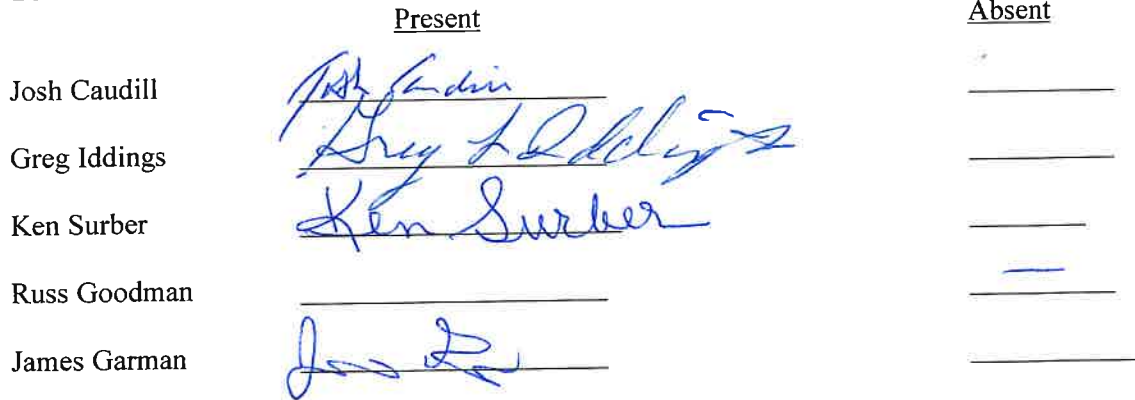 Present Absent
Josh Caudill Josh Caudill
Greg Iddings Greg L Iddings
Ken Surber Ken Surber
Russ Goodman —
James Garman